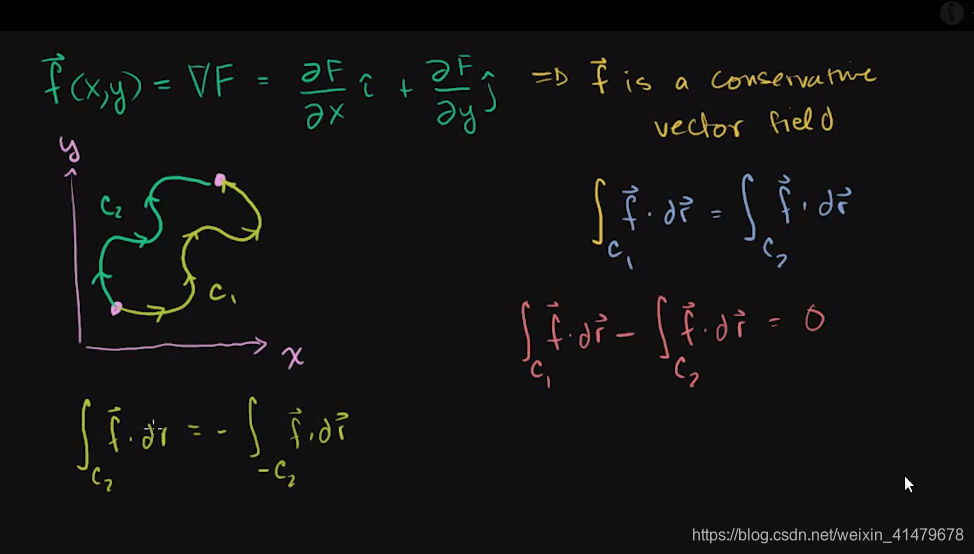 f⃗(x,y) = ∇F = ∂F/∂x î + ∂F/∂y ĵ ⇒ f⃗ is a conservative
vector field
y
C₂
C₁
x
∫_C₁ f⃗ · dr⃗ = ∫_C₂ f⃗ · dr⃗
∫_C₁ f⃗ · dr⃗ − ∫_C₂ f⃗ · dr⃗ = 0
∫_C₂ f⃗ · dr = − ∫_−C₂ f⃗ · dr⃗
https://blog.csdn.net/weixin_41479678